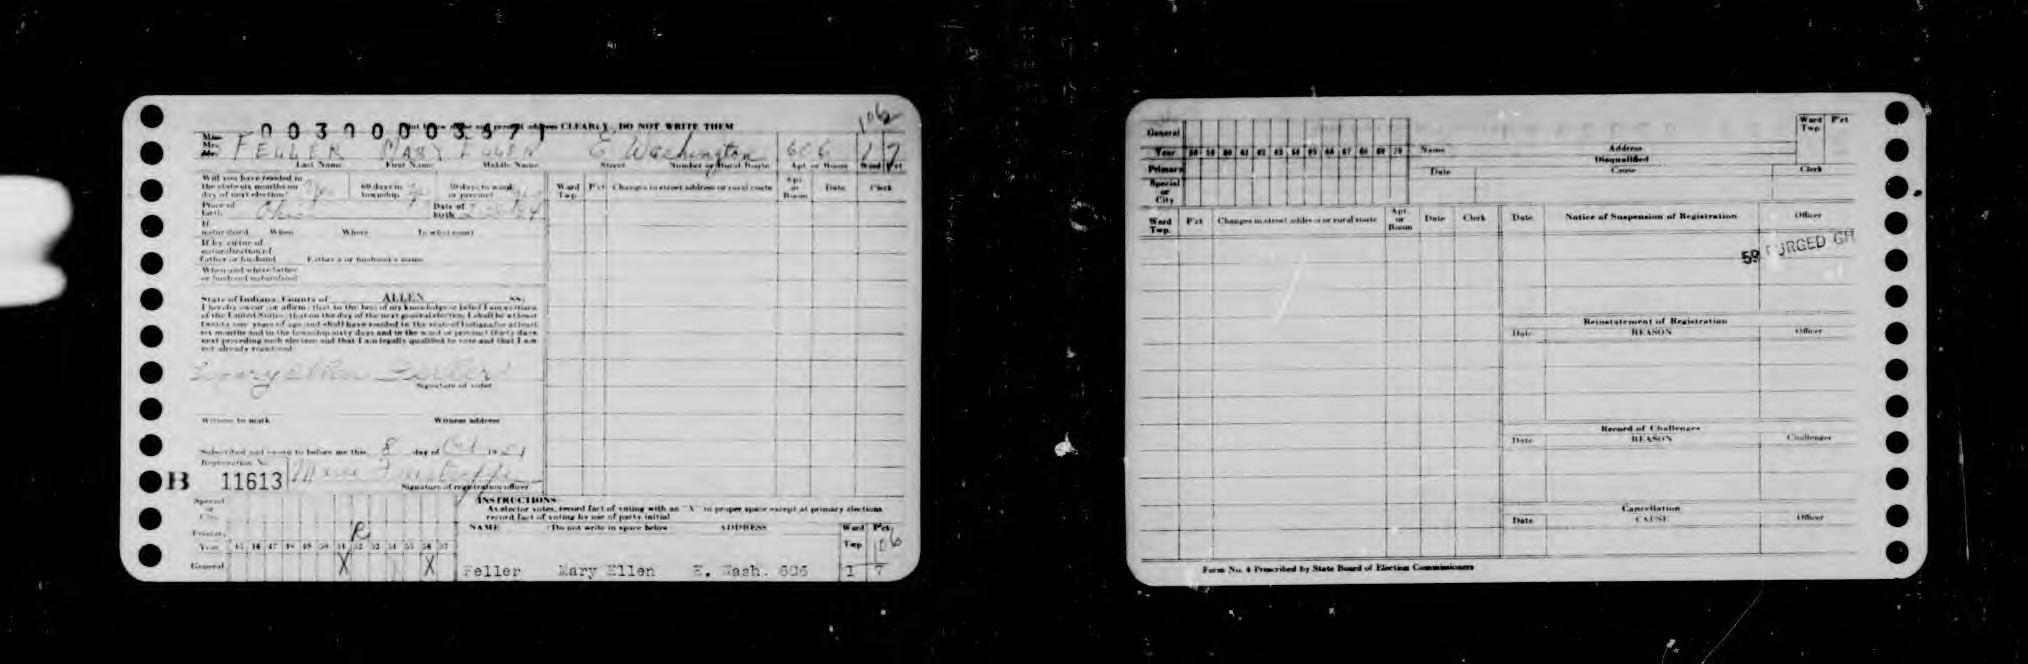 00300003571
106
CLEARLY, DO NOT WRITE THEM
Miss
Mrs.
Mr.
FELLER MARY ELLEN E. Washington 606 1 7
Last Name First Name Middle Name Street Number or Rural Route Apt. or Room Ward Pct
Will you have resided in
the state six months on
day of next election? Yes
60 days in
township
30 days in ward
or precinct
Ward
Twp.
P'ct
Changes in street address or rural route
Apt.
or
Room
Date
Clerk
Place of
birth Ohio
Date of
birth
If
naturalized When Where In what court
If by virtue of
naturalization of
father or husband Father's or husband's name
When and where father
or husband naturalized
State of Indiana, County of ALLEN SS:
I hereby swear (or affirm) that to the best of my knowledge or belief I am a citizen
of the United States; that on the day of the next general election I shall be at least
twenty-one years of age and shall have resided in the state of Indiana for at least
six months and in the township sixty days and in the ward or precinct thirty days
next preceding such election and that I am legally qualified to vote and that I am
not already registered.
Mary Ellen Feller
Signature of voter
Witness to mark Witness address
Subscribed and sworn to before me this 8 day of Oct 19 51
Registration No.
B 11613
Signature of registration officer
INSTRUCTIONS
As elector votes, record fact of voting with an "X" in proper space except at primary elections
record fact of voting by use of party initial
Special
or
City
Primary R
Year 45 46 47 48 49 50 51 52 53 54 55 56 57
General X X
NAME (Do not write in space below) ADDRESS
Ward
Twp.
P'ct
106
Feller Mary Ellen E. Wash. 606 1 7
General
Year 58 59 60 61 62 63 64 65 66 67 68 69 70
Primary
Special
or
City
Name Address
Ward
Twp
P'ct
Disqualified
Date Cause Clerk
Ward
Twp.
P'ct
Changes in street address or rural route
Apt.
or
Room
Date
Clerk
Date Notice of Suspension of Registration Officer
59 PURGED GH
Reinstatement of Registration
Date REASON Officer
Record of Challenges
Date REASON Challenger
Cancellation
Date CAUSE Officer
Form No. 4 Prescribed by State Board of Election Commissioners